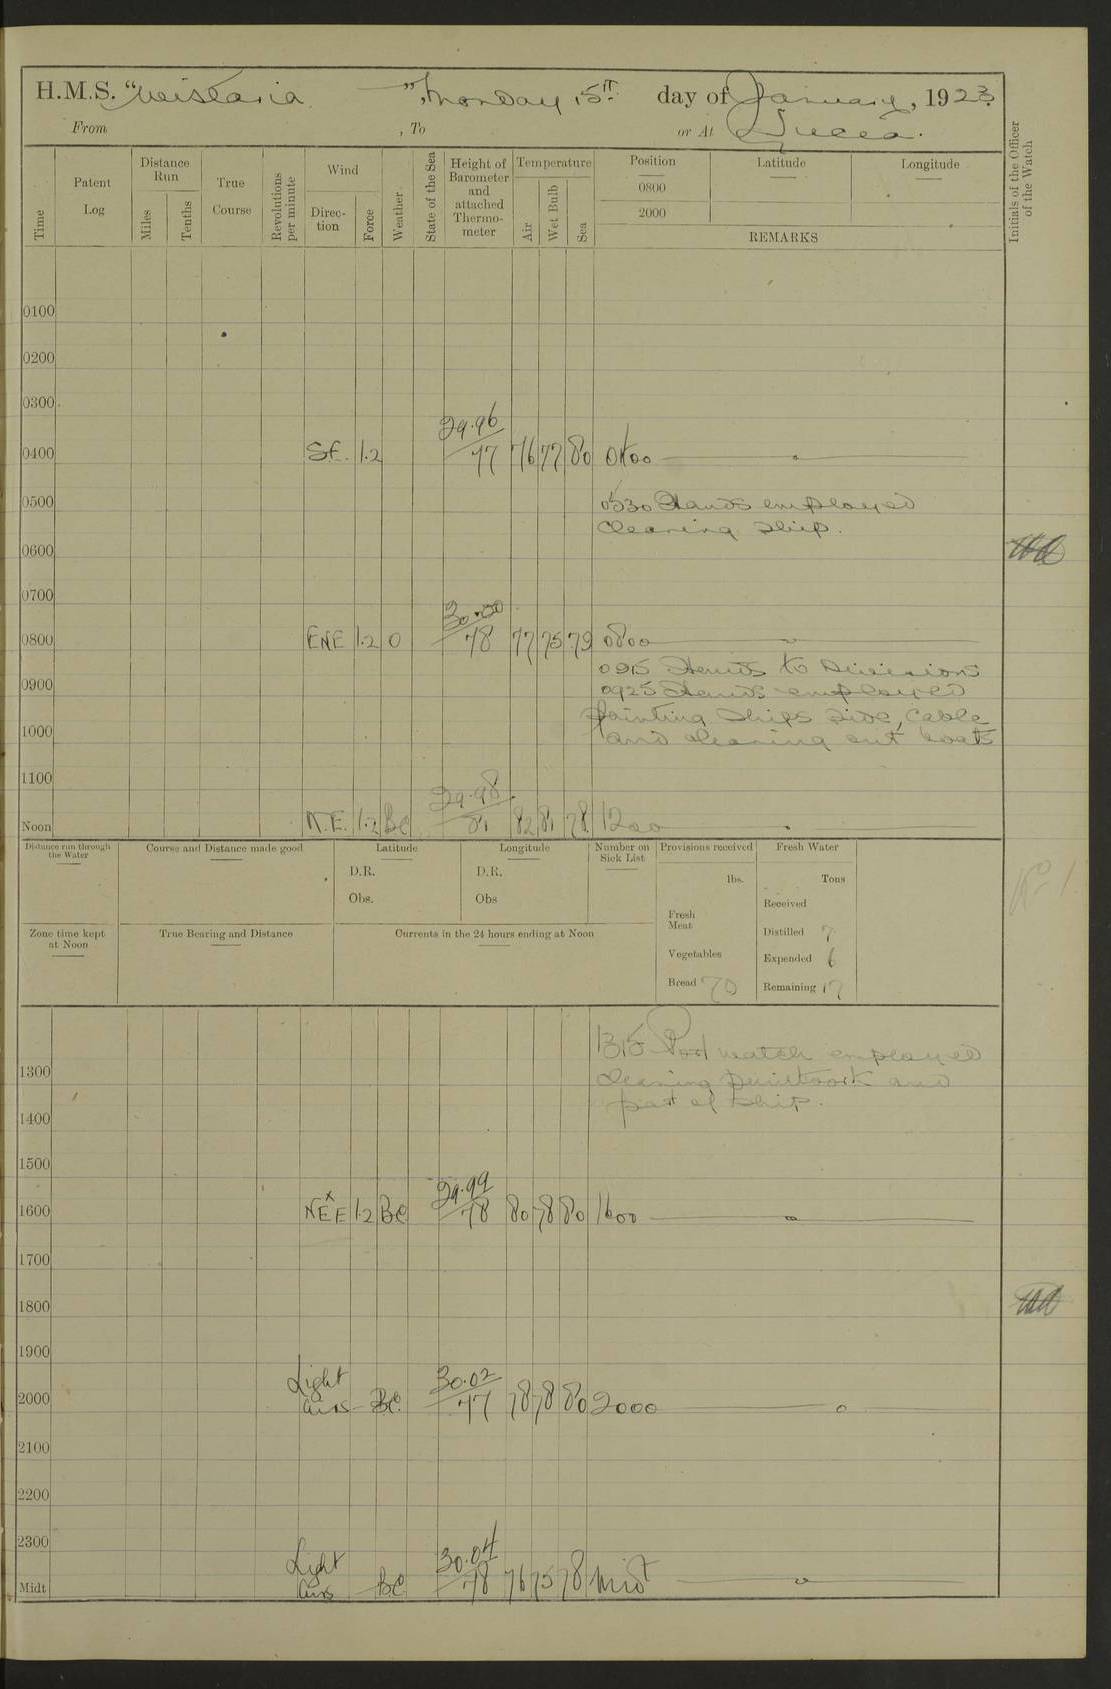 H.M.S. "Wistaria ", Monday 15th day of January, 1923.
From , To or At Lucea.
Time
Patent Log
Distance Run
Miles
Tenths
True Course
Revolutions per minute
Wind
Direction
Force
Weather
State of the Sea
Height of Barometer and attached Thermometer
Temperature
Air
Wet Bulb
Sea
Position
0800
2000
Latitude
Longitude
REMARKS
Initials of the Officer of the Watch
0100
0200
0300
0400 SE. 1.2 29.96 77 76 77 80 0400
0500 0530 Hands employed
cleaning ship.
0600
0700
0800 ENE 1.2 O 30.00 78 77 75 79 0800
0915 Hands to Divisions
0900 0925 Hands employed
painting ships side, cable
1000 and cleaning out boats
1100
Noon N.E. 1.2 BC 29.98 81 82 81 78 1200
Distance run through the Water
Course and Distance made good
Latitude
D.R.
Obs.
Longitude
D.R.
Obs
Number on Sick List
Provisions received
lbs.
Fresh Meat
Vegetables
Bread 70
Fresh Water
Tons
Received
Distilled 7
Expended 6
Remaining 17
Zone time kept at Noon
True Bearing and Distance
Currents in the 24 hours ending at Noon
No 1
1315 Port watch employed
1300 cleaning paintwork and
part of ship.
1400
1500
1600 NE x E 1.2 BC 29.99 78 80 78 80 1600
1700
1800
1900
2000 Light airs BC. 30.02 77 78 78 80 2000
2100
2200
2300
Midt Light airs BC 30.04 78 76 75 78 Midt